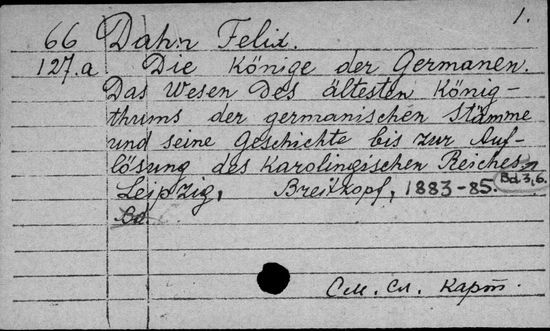 1.
66 Dahn Felix.
127.a. Die Könige der Germanen.
Das Wesen des ältesten König-
thums der germanischen Stämme
und seine Geschichte bis zur Auf-
lösung des Karolingischen Reiches.
Leipzig, Breitkopf, 1883-85. Bd. 3, 6.
Bd.
См. сл. карт.